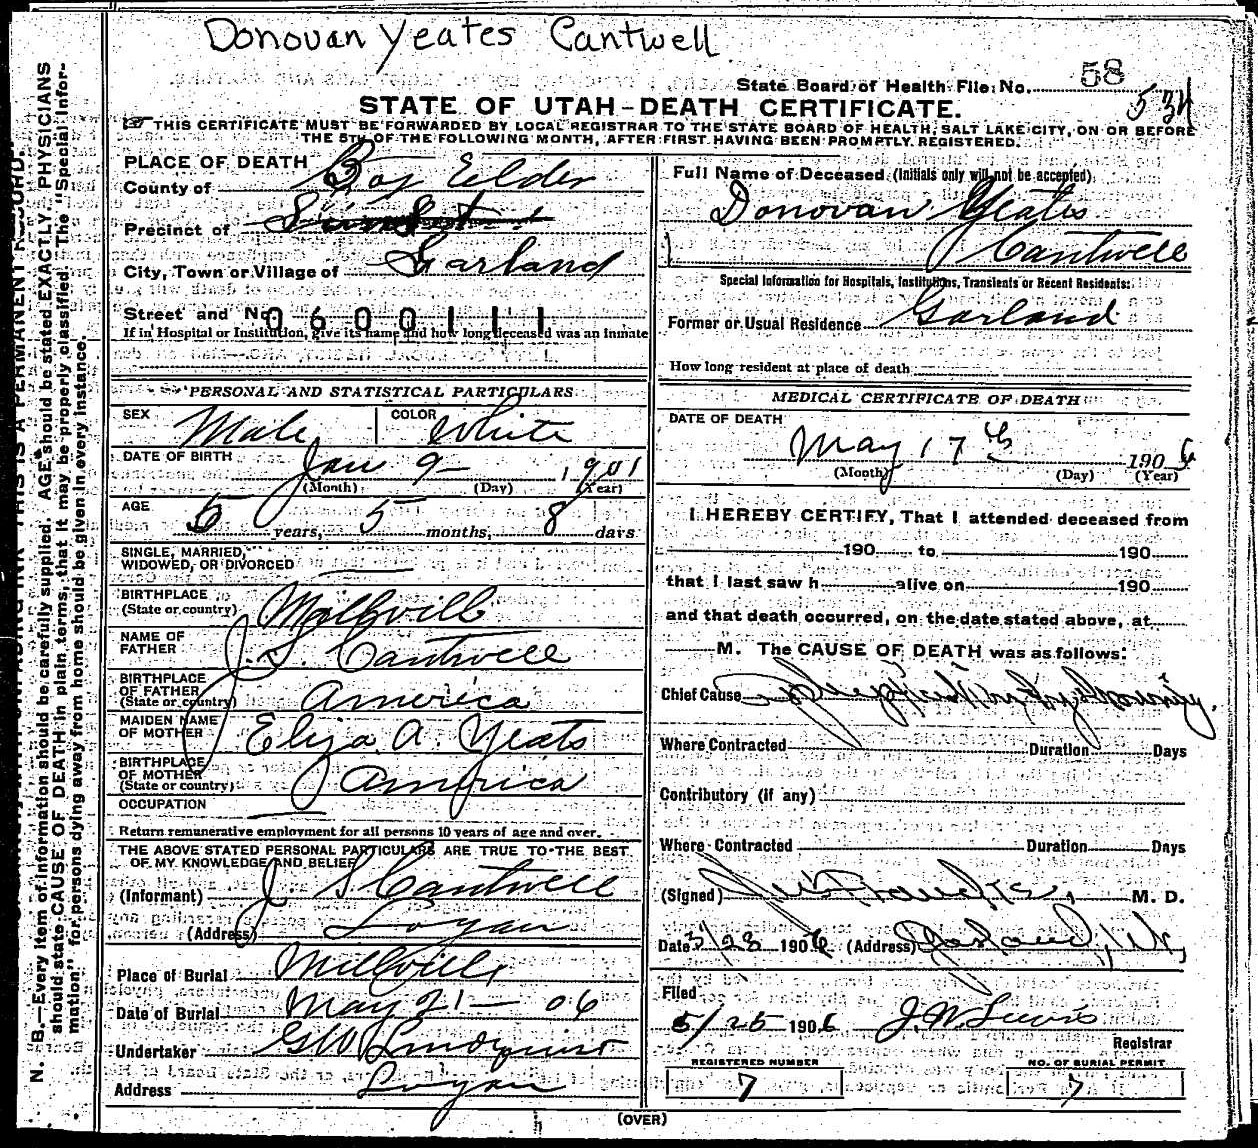 Donovan Yeates Cantwell
State Board of Health File No. 58
534
STATE OF UTAH-DEATH CERTIFICATE.
THIS CERTIFICATE MUST BE FORWARDED BY LOCAL REGISTRAR TO THE STATE BOARD OF HEALTH, SALT LAKE CITY, ON OR BEFORE
THE 5TH OF THE FOLLOWING MONTH, AFTER FIRST HAVING BEEN PROMPTLY REGISTERED.
PLACE OF DEATH
County of Box Elder
Precinct of
City, Town or Village of Garland
Street and No. 0600111
If in Hospital or Institution, give its name and how long deceased was an inmate
PERSONAL AND STATISTICAL PARTICULARS
SEX Male COLOR White
DATE OF BIRTH Jan 9 - 1901
(Month) (Day) (Year)
AGE 5 years, 5 months, 8 days
SINGLE, MARRIED,
WIDOWED, OR DIVORCED
BIRTHPLACE
(State or country) Millville
NAME OF
FATHER J. S. Cantwell
BIRTHPLACE
OF FATHER
(State or country) America
MAIDEN NAME
OF MOTHER Eliza A. Yeats
BIRTHPLACE
OF MOTHER
(State or country) America
OCCUPATION
Return remunerative employment for all persons 10 years of age and over.
THE ABOVE STATED PERSONAL PARTICULARS ARE TRUE TO THE BEST
OF MY KNOWLEDGE AND BELIEF
(Informant) J S Cantwell
(Address) Logan
Place of Burial Millville
Date of Burial May 21 - 06
Undertaker G W Lindquist
Address Logan
Full Name of Deceased (Initials only will not be accepted)
Donovan Yeates
Cantwell
Special Information for Hospitals, Institutions, Transients or Recent Residents:
Former or Usual Residence Garland
How long resident at place of death
MEDICAL CERTIFICATE OF DEATH
DATE OF DEATH
May 17th 1906
(Month) (Day) (Year)
I HEREBY CERTIFY, That I attended deceased from
190 to 190
that I last saw h alive on 190
and that death occurred, on the date stated above, at
M. The CAUSE OF DEATH was as follows:
Chief Cause
Where Contracted Duration Days
Contributory (if any)
Where Contracted Duration Days
(Signed) M. D.
Date 5/23 1906 (Address) Garland, Ut.
Filed
5/25 1906 J. W. Lewis
Registrar
REGISTERED NUMBER NO. OF BURIAL PERMIT
7 7
(OVER)
N. B.—Every item of information should be carefully supplied. AGE should be stated EXACTLY. PHYSICIANS
should state CAUSE OF DEATH in plain terms, that it may be properly classified. The "Special Infor-
mation" for persons dying away from home should be given in every instance.